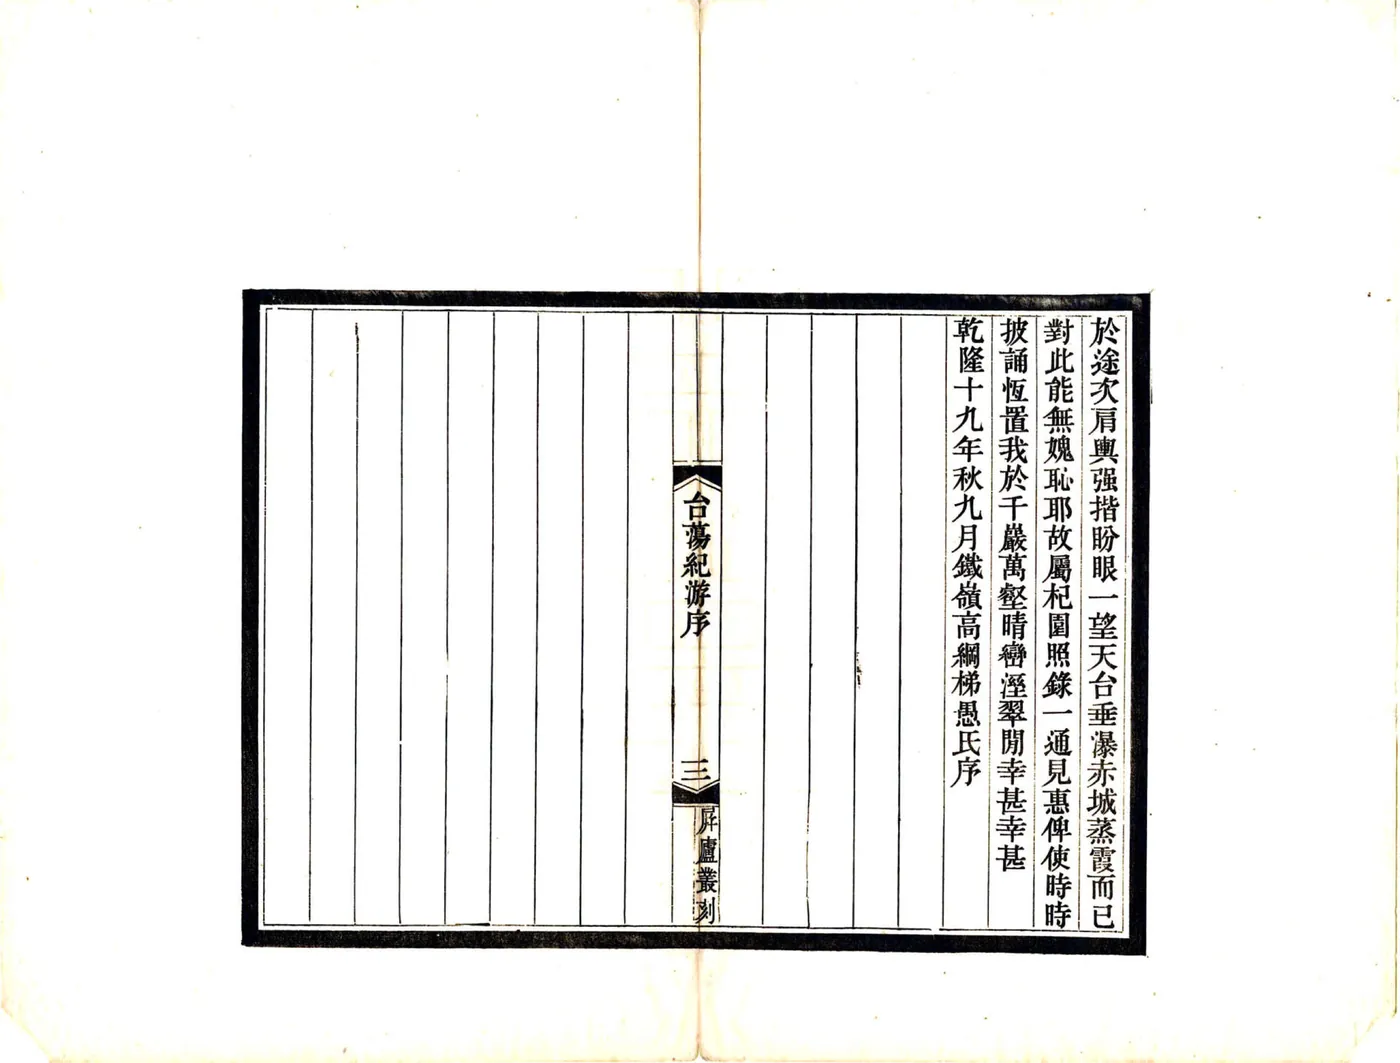 於途次肩輿强揩盼眼一望天台垂瀑赤城蒸霞而已
對此能無媿恥耶故屬杞園照錄一通見惠俾使時時
披誦恆置我於千巖萬壑晴巒溼翠閒幸甚幸甚
乾隆十九年秋九月鐵嶺高綱梯愚氏序
台蕩紀游序
三
屛廬叢刻